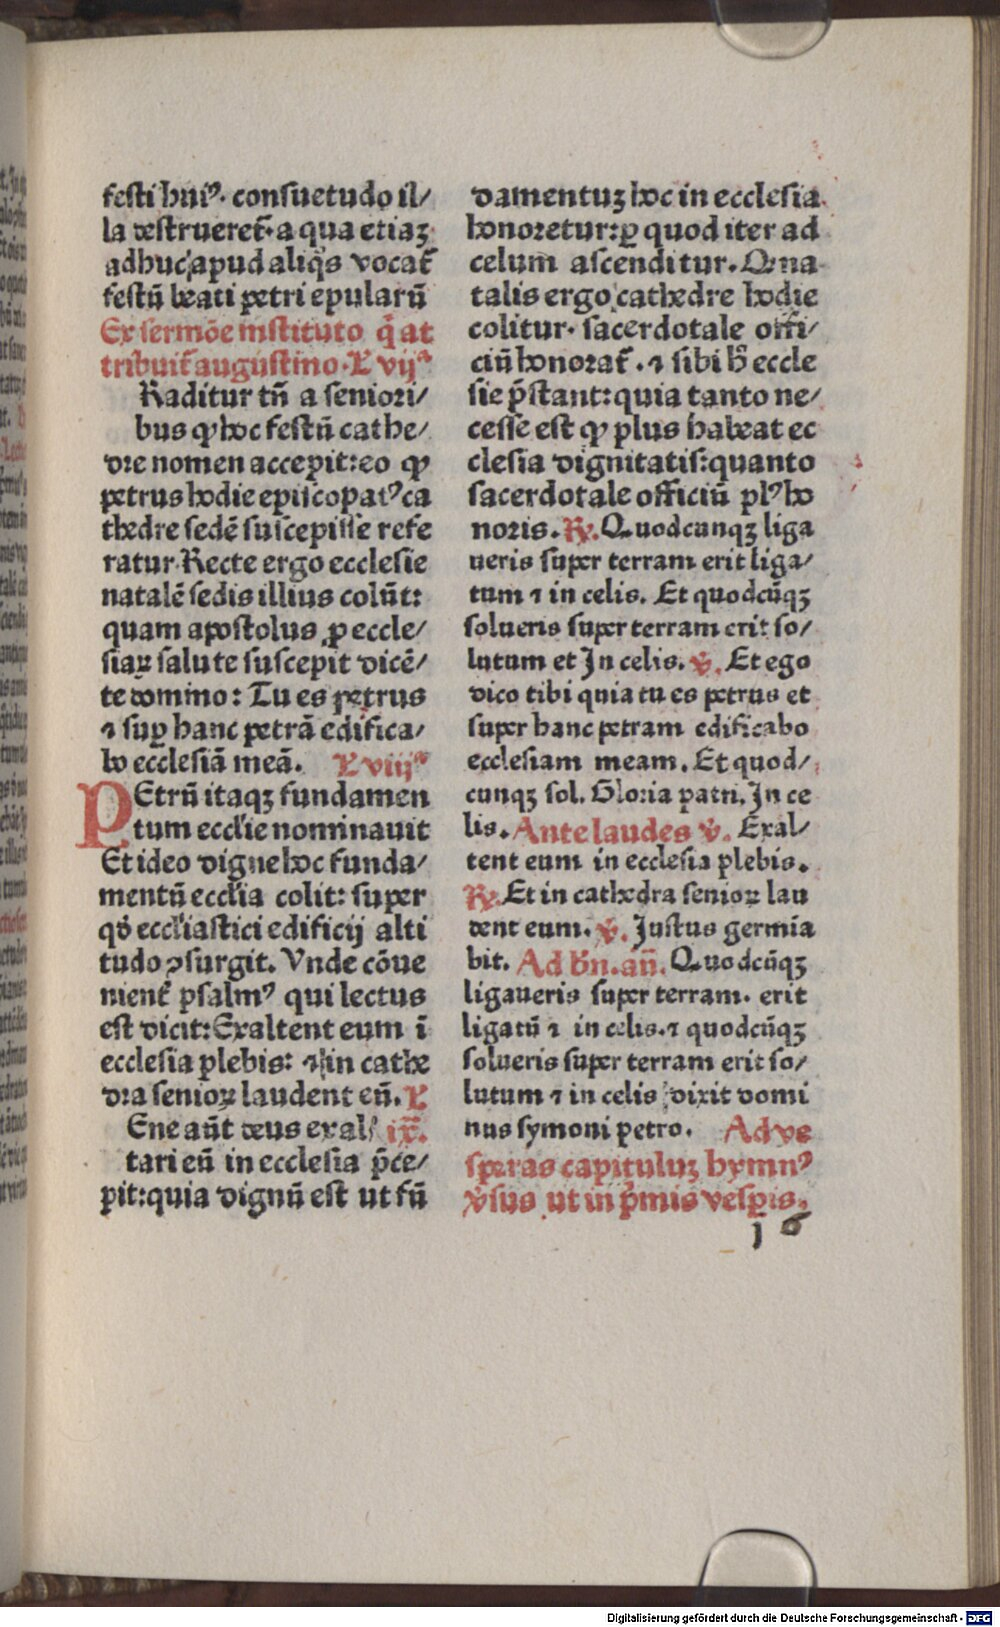 festi huiꝰ. consuetudo il/
la destrueret᷑. a qua etiaꝫ
adhuc apud aliq̃s vocat᷑
festũ beati petri epularũ
Ex sermõe instituto q̃ at
tribuit᷑ augustino. L vijᵃ
Raditur tñ a seniori/
bus ꝙ hoc festũ cathe/
dre nomen accepit: eo ꝙ
petrus hodie episcopatꝰ ca
thedre sedẽ suscepisse refe
ratur. Recte ergo ecclesie
natalẽ sedis illius colũt:
quam apostolus ꝓ eccle/
siaꝝ salute suscepit dicẽ/
te domino: Tu es petrus
⁊ suꝑ hanc petrã edifica/
bo ecclesiã meã. L viijᵃ
PEtrũ itaqꝫ fundamen
tum eccl'ie nominauit
Et ideo digne hoc funda/
mentũ eccl'ia colit: super
qđ eccl'iastici edificij alti
tudo ꝯsurgit. Vnde cõue
nient᷑ psalmꝰ qui lectus
est dicit: Exaltent eum ĩ
ecclesia plebis: ⁊ in cathe
dra senioꝝ laudent eũ. L
Ene aũt deus exal/ ix.
tari eũ in ecclesia p̃ce/
pit: quia dignũ est ut fũ
damentuꝫ hoc in ecclesia
honoretur: ꝑ quod iter ad
celum ascenditur. Q. na
talis ergo cathedre hodie
colitur. sacerdotale offi/
ciũ honorat᷑. ⁊ sibi h̃ eccle
sie p̃stant: quia tanto ne/
cesse est ꝙ plus habeat ec
clesia dignitatis: quanto
sacerdotale officiũ plꝰ ho
noris. ℟. Quodcunqꝫ liga
ueris super terram erit liga/
tum ⁊ in celis. Et quodcũqꝫ
solueris super terram erit so/
lutum et In celis. ℣. Et ego
dico tibi quia tu es petrus et
super hanc petram edificabo
ecclesiam meam. Et quod/
cunqꝫ sol. Gloria patri. In ce
lis. Ante laudes ℣. Exal/
tent eum in ecclesia plebis.
℟. Et in cathedra senioꝝ lau
dent eum. ℣. Justus germia
bit. Ad bñ. añ. Quodcũqꝫ
ligaueris super terram. erit
ligatũ ⁊ in celis. ⁊ quodcũqꝫ
solueris super terram erit so/
lutum ⁊ in celis dixit domi
nus symoni petro. Ad ve
speras capituluꝫ hymnꝰ
℣sus ut in p̃mis vesꝑis.
1 6
Digitalisierung gefördert durch die Deutsche Forschungsgemeinschaft - DFG